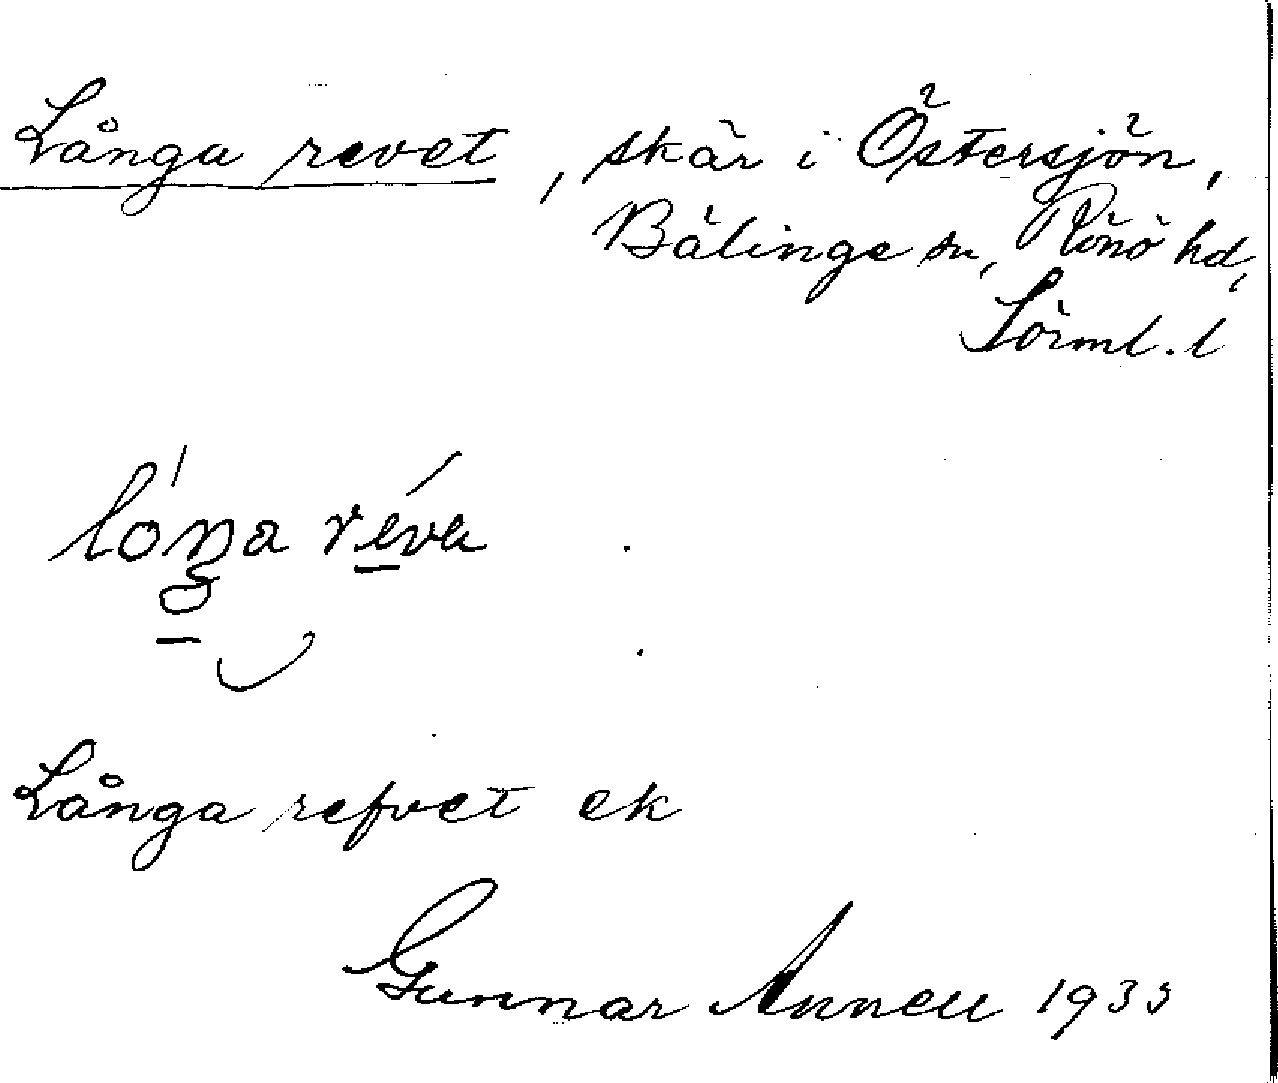 Långa revet, skär i Östersjön,
Bälinge sn, Rönö hd,
Sörml. l
lóŋa réva
Långa refvet ek
Gunnar Annell 1933